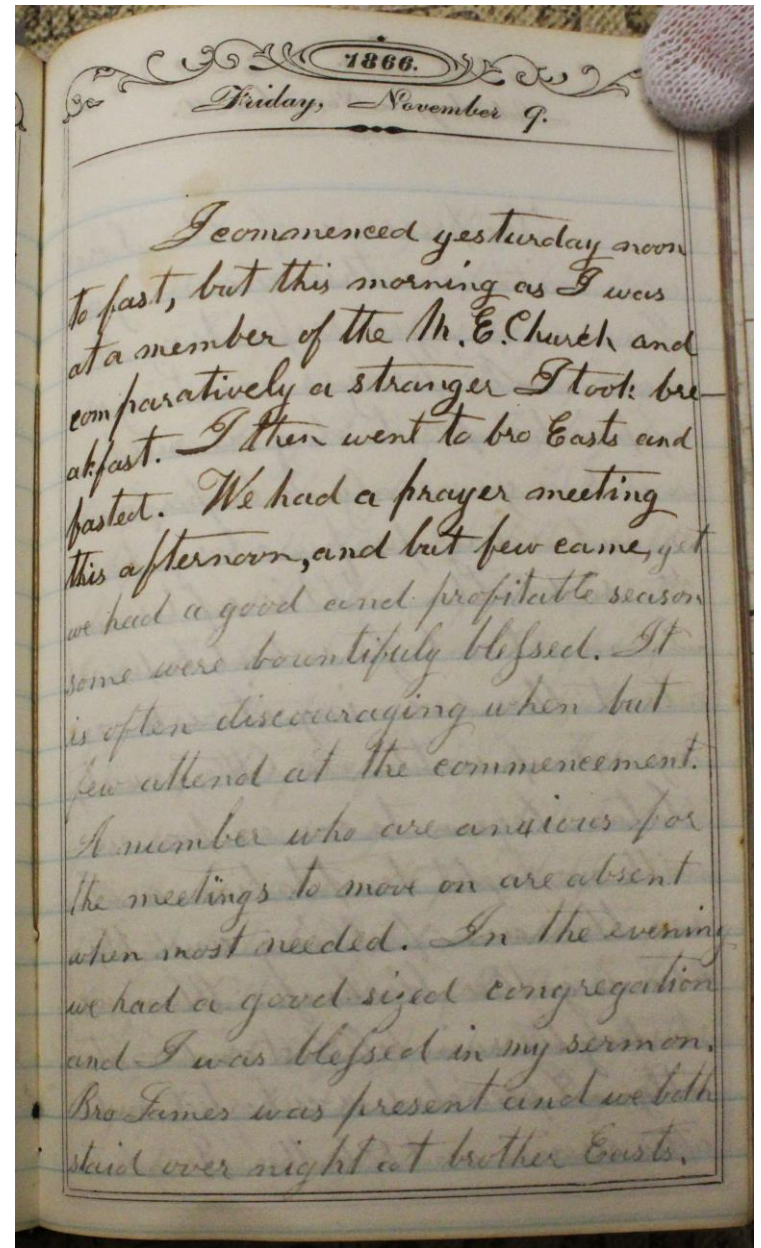 1866.
Friday, November 9.
I commenced yesturday noon
to fast, but this morning as I was
at a member of the M.E. Church and
comparatively a stranger I took bre-
akfast. I then went to bro Easts and
fasted. We had a prayer meeting
this afternoon, and but few came, yet
we had a good and profitable season
some were bountifuly blessed. It
is often discouraging when but
few attend at the commencement.
A number who are anxious for
the meetings to move on are absent
when most needed. In the evening
we had a good sized congregation
and I was blessed in my sermon.
Bro James was present and we both
staid over night at brother Easts.